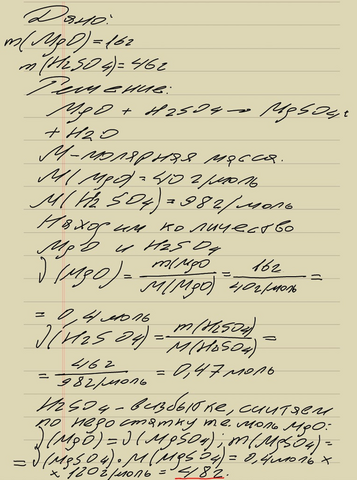 Дано:
m(MgO)=16г
m(H2SO4)=46г
Решение:
MgO + H2SO4 → MgSO4
+ H2O
M-молярная масса.
M(MgO)=40 г/моль
M(H2SO4)=98г/моль
Находим количество
MgO и H2SO4
√(MgO) = m(MgO / M(MgO) = 16г / 40г/моль =
= 0,4 моль
√(H2SO4) = m(H2SO4) / M(H2SO4) =
= 46г / 98г/моль = 0,47моль
H2SO4 - в избытке, считаем
по недостатку те моль MgO:
√(MgO)=√(MgSO4; m(MgSO4)=
=√(MgSO4)·M(MgSO4)=0,4моль×
×120г/моль=48г.